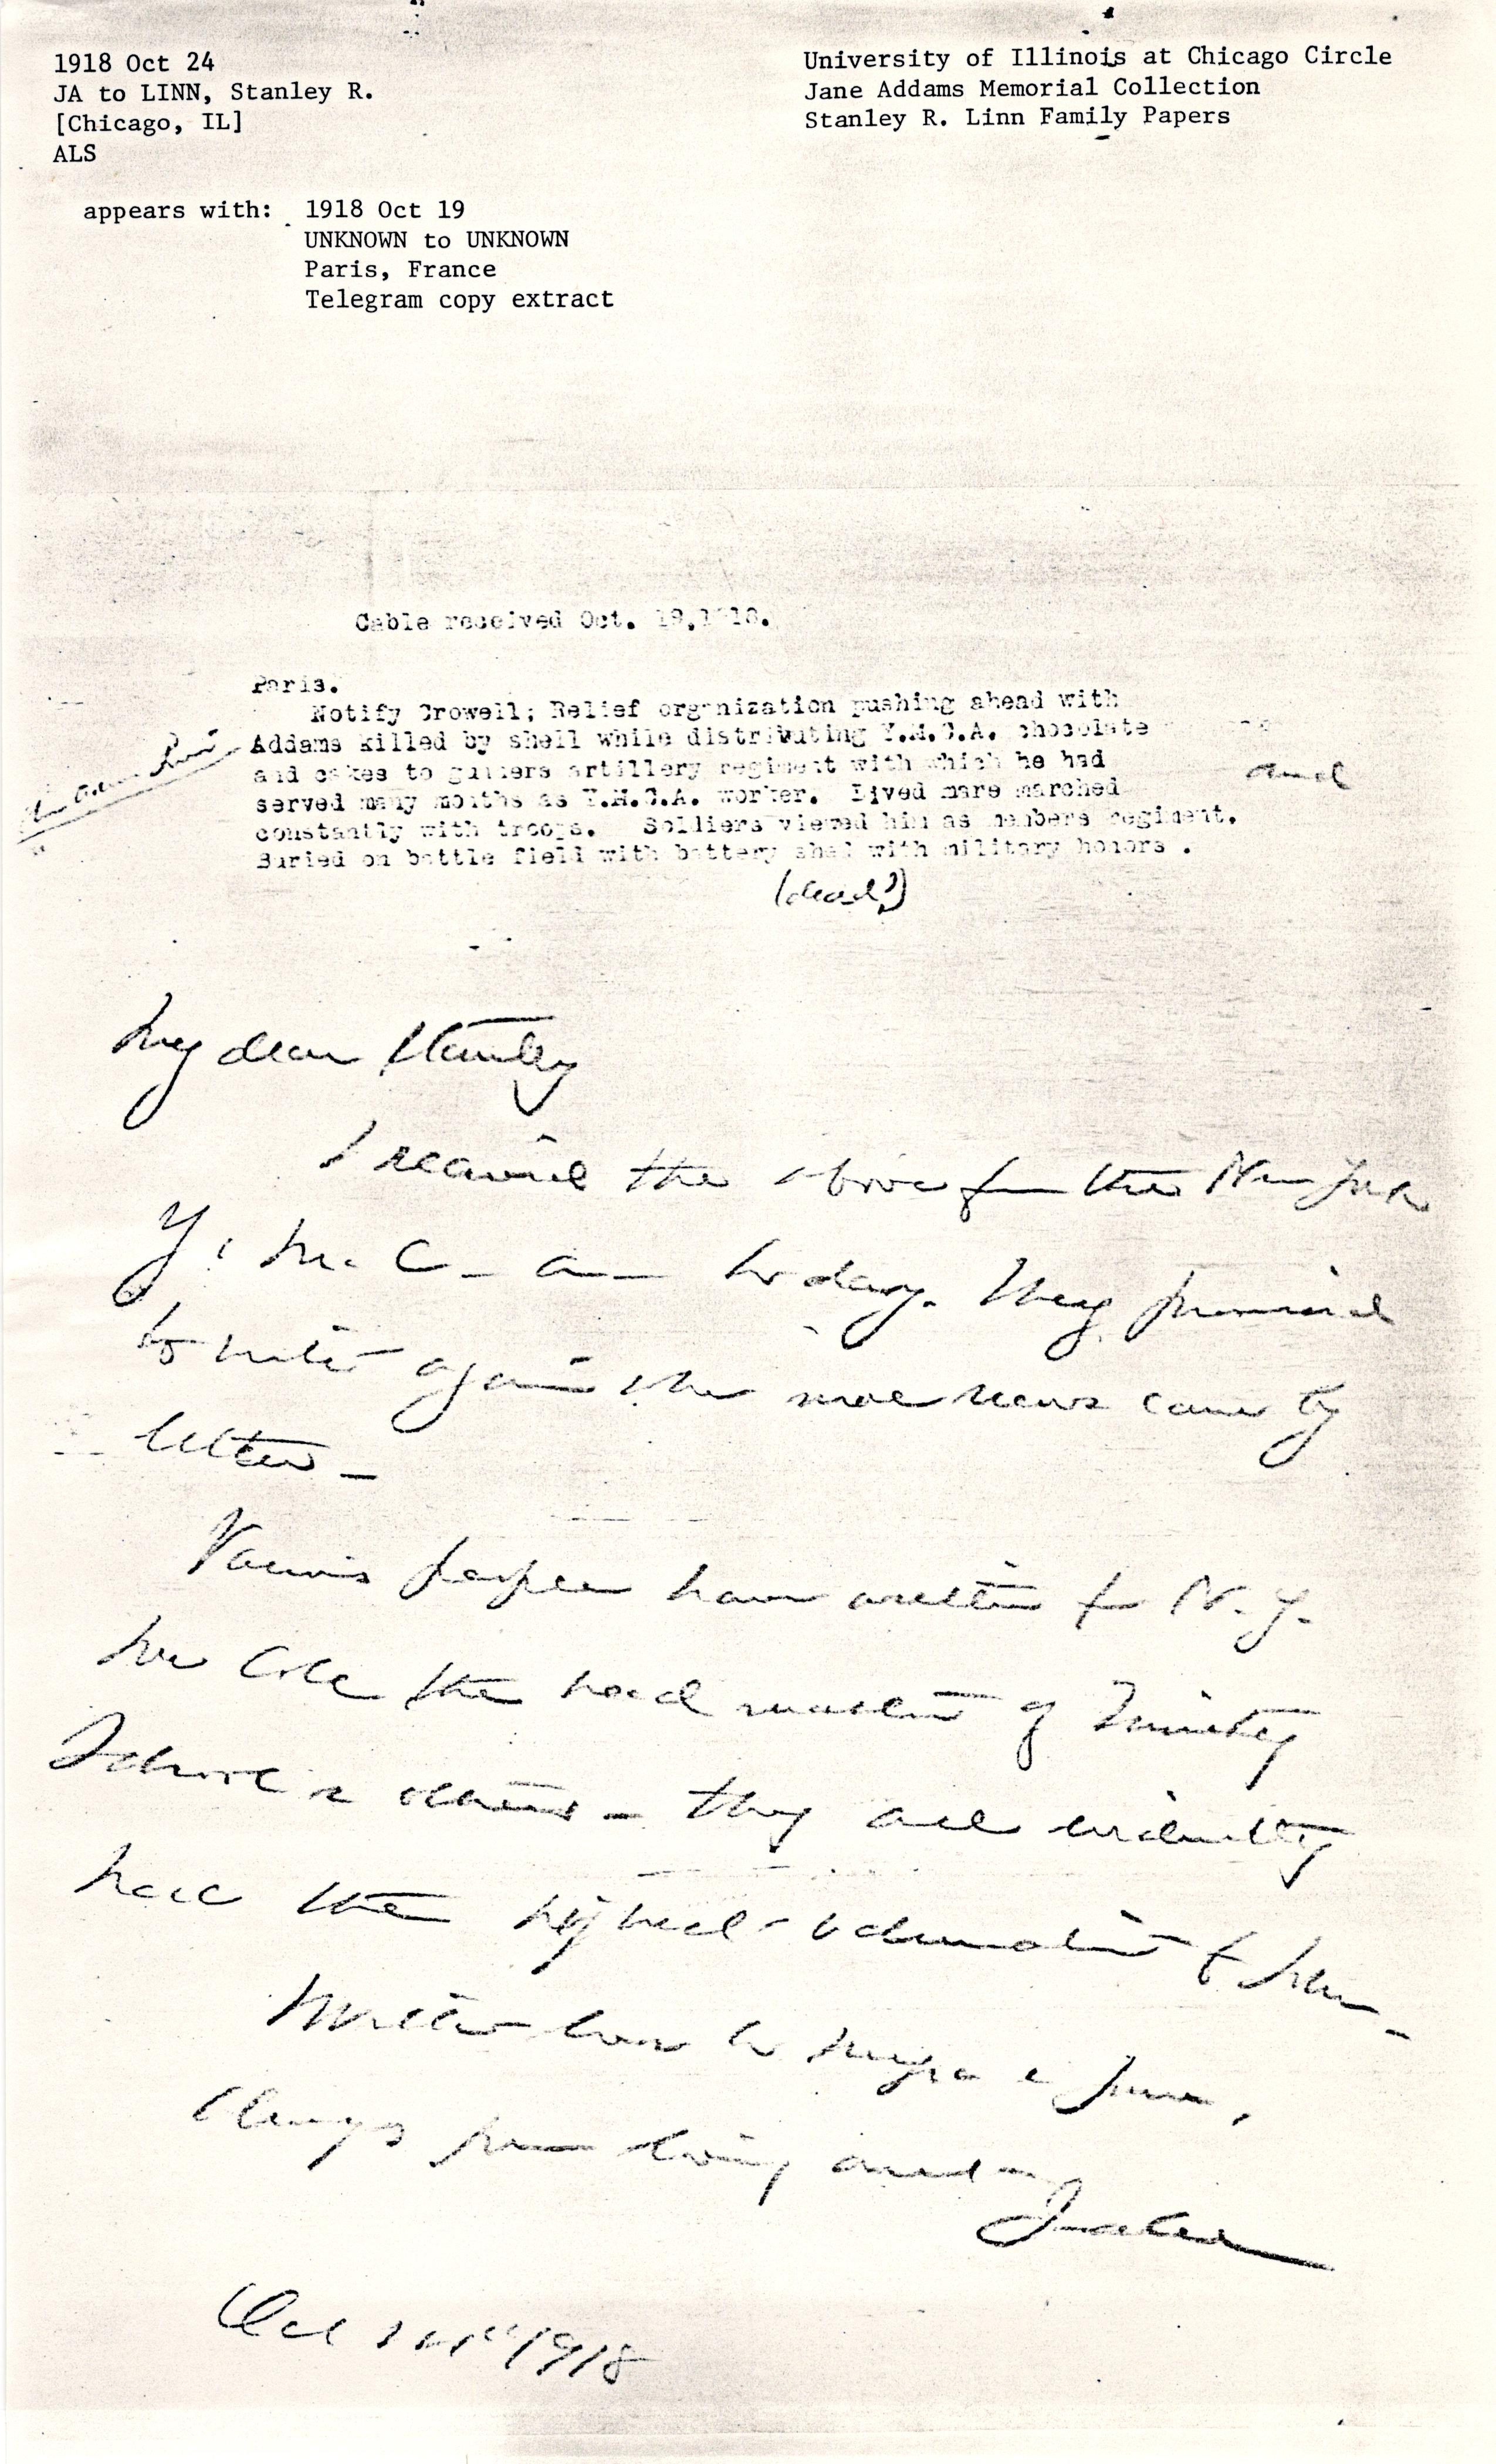 1918 Oct 24
JA to LINN, Stanley R.
[Chicago, IL]
ALS
University of Illinois at Chicago Circle
Jane Addams Memorial Collection
Stanley R. Linn Family Papers
appears with: 1918 Oct 19
UNKNOWN to UNKNOWN
Paris, France
Telegram copy extract
Cable received Oct. 19,1918.
Paris.
Notify Crowell; Relief organization pushing ahead with
Addams killed by shell while distributing Y.M.C.A. chocolate
and cakes to gunners artillery regiment with which he had
served many months as Y.M.C.A. worker. Lived mare marched
and
constantly with troops. Soldiers viewed him as members regiment.
Buried on battle field with battery shed with military honors .
(dead?)
My dear Stanley
I received the above from the New York
Y. M. C. A. to day. They promised
to write again when more news came by
letter -
Various people have written from N. Y.
Mr Cole the head master of Trinity
School & others - they all evidently
had the highest admiration for him -
Much love to Myra & yours,
Always your loving aunt
Jane Addams
Oct 24" 1918